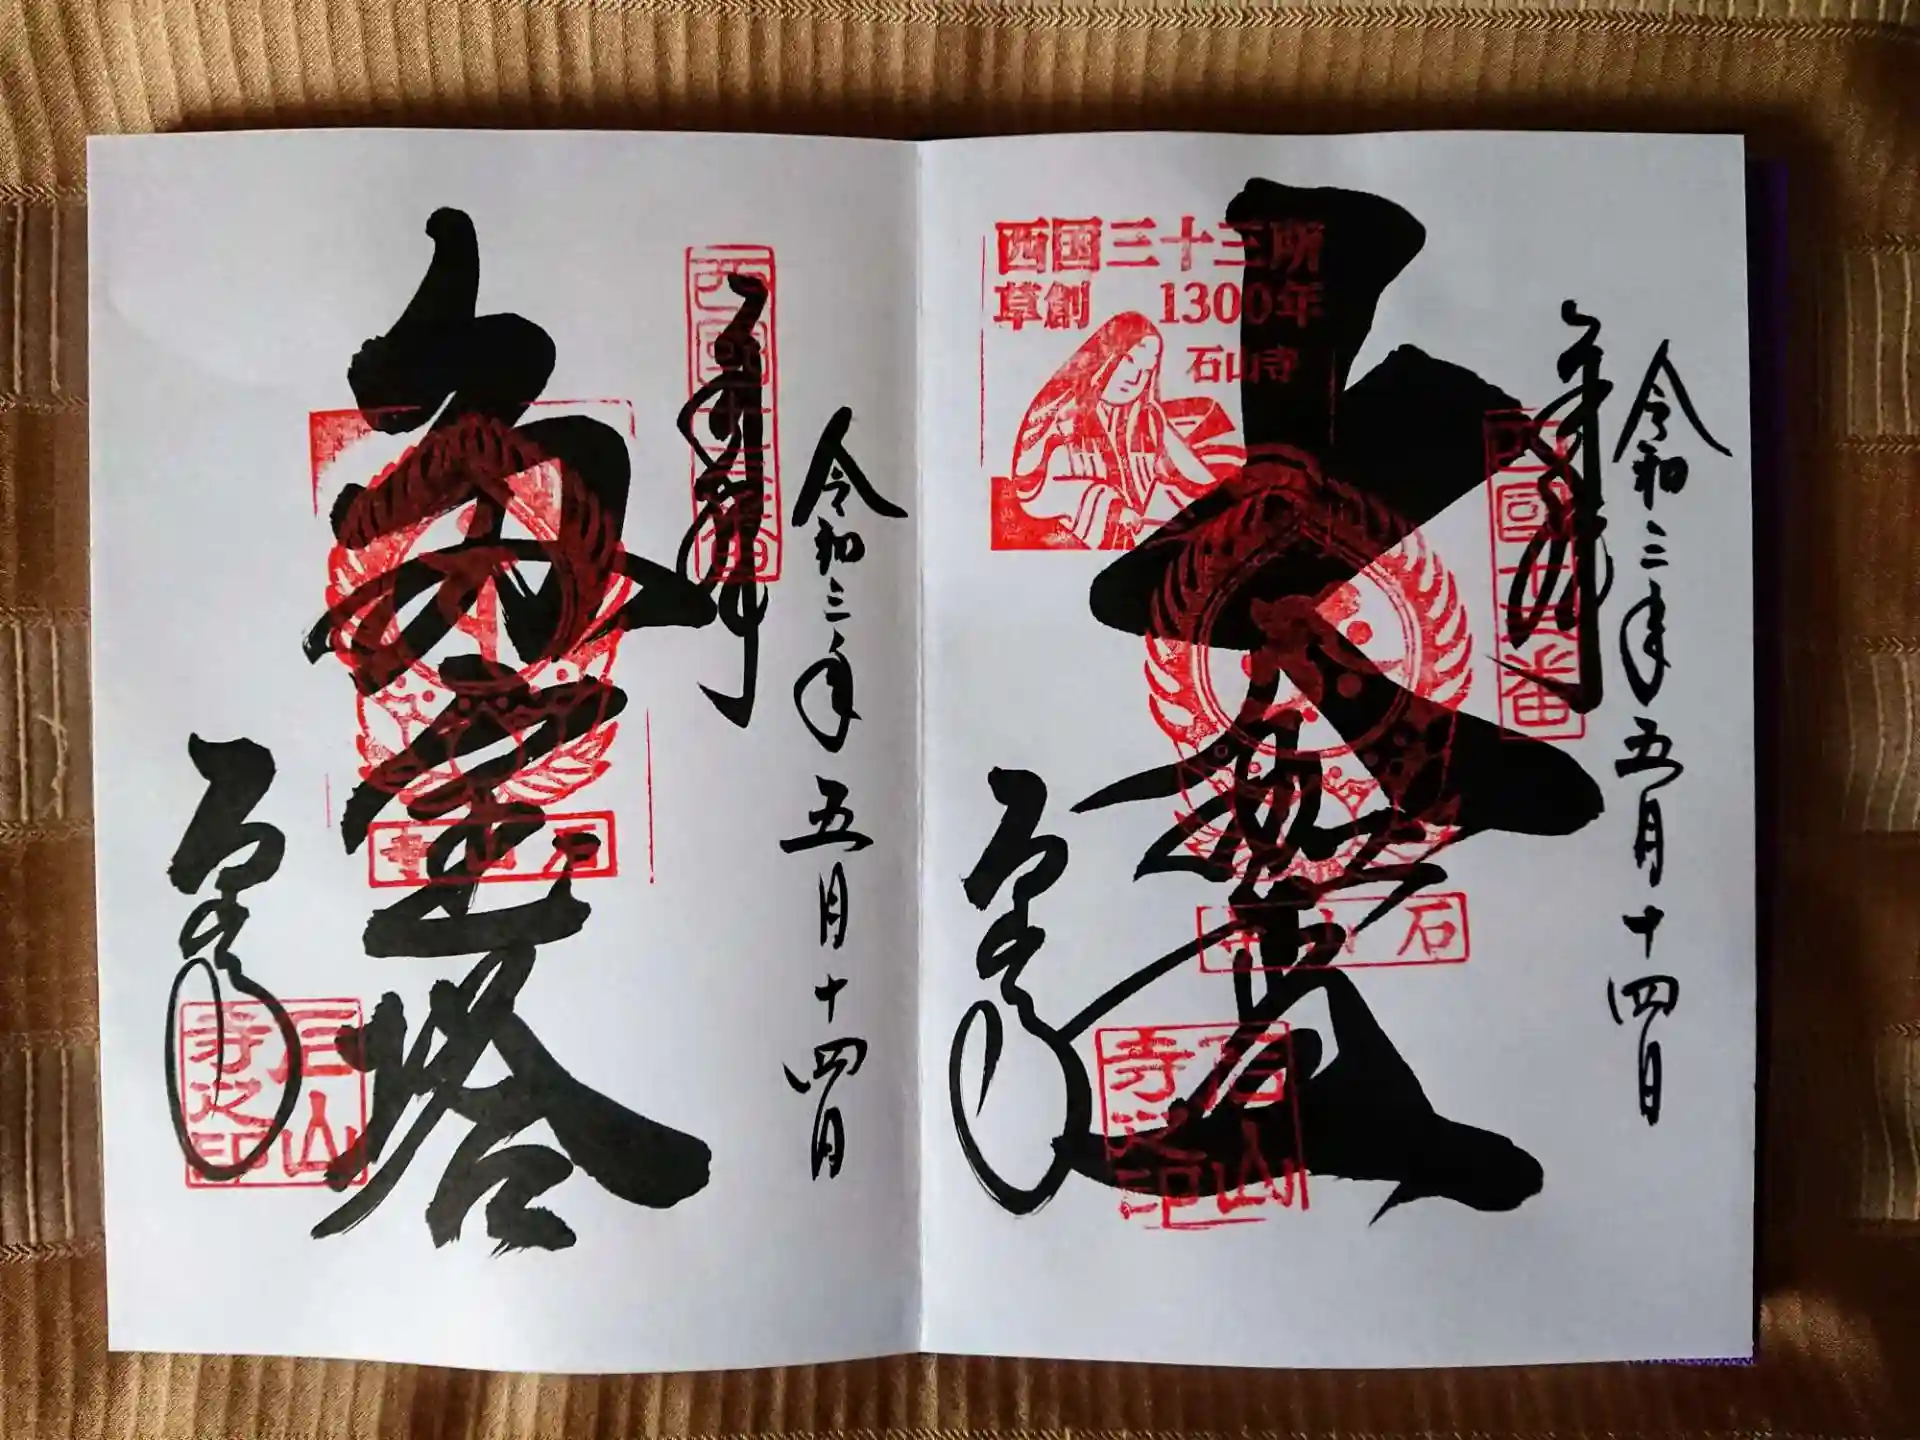 令和三年五月十四日
奉拝
西國十三番
西国三十三所
草創 1300年
石山寺
石山寺
石山寺
石山寺之印
令和三年五月十四日
奉拝
西國十三番
多宝塔
石山寺
石山寺
石山寺之印